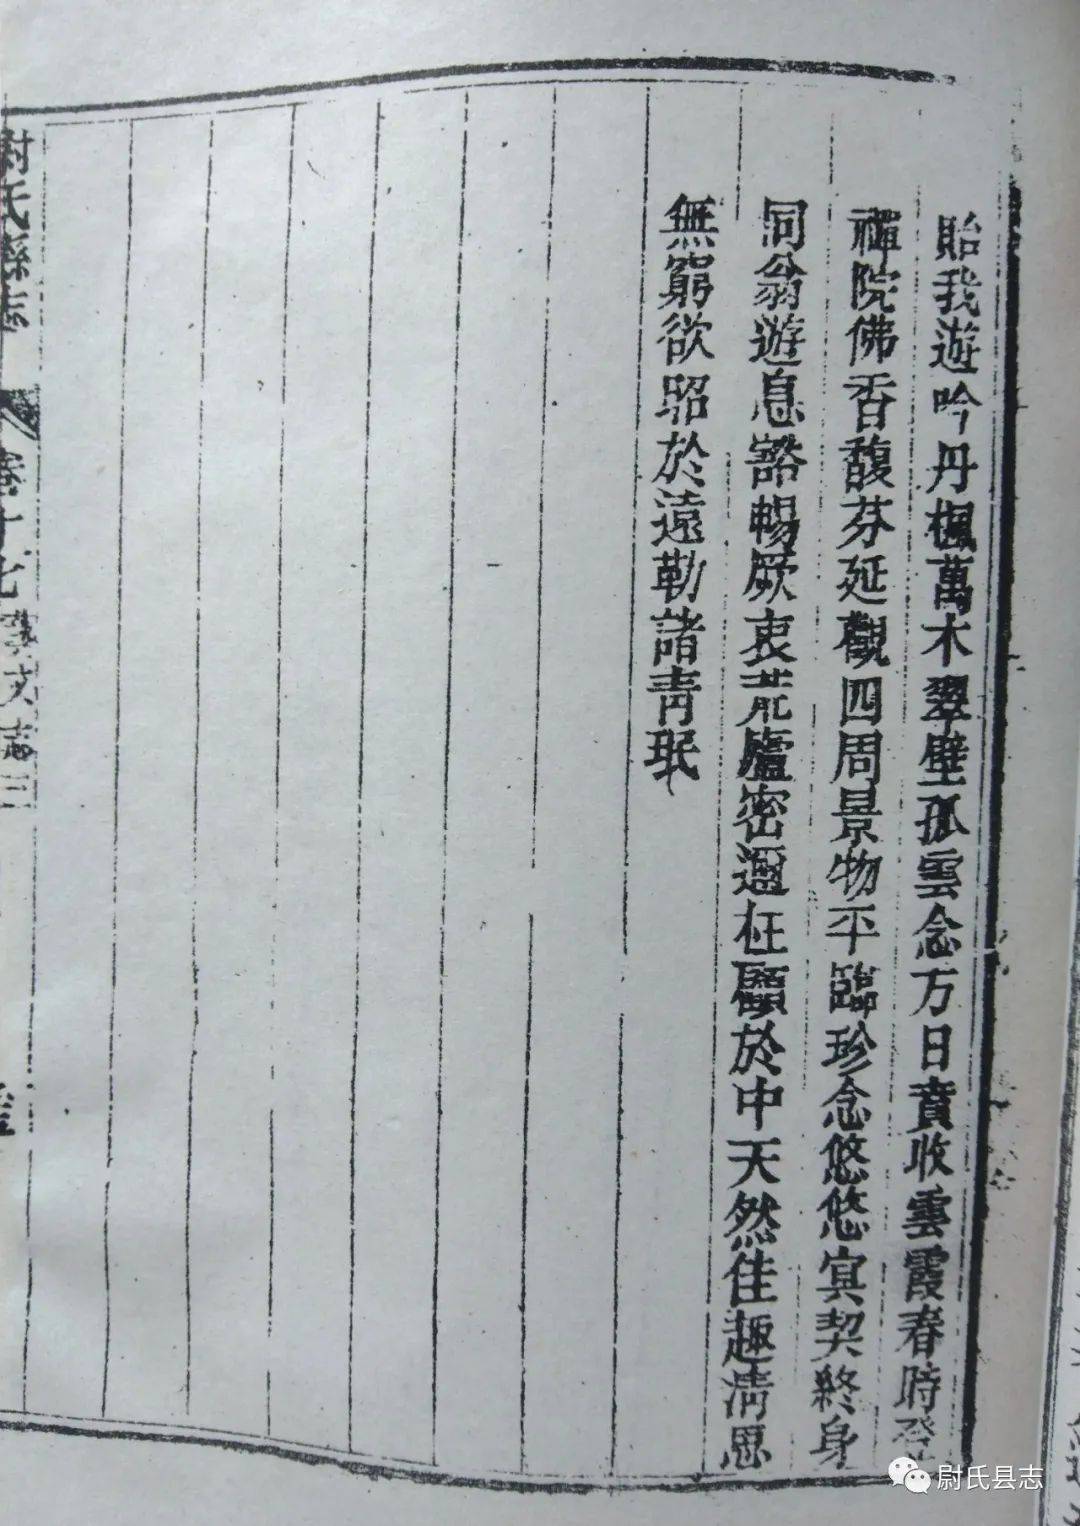 貽我遊吟丹楓萬木翠壁孤雲念万日賁收雲霞春時登
禪院佛香馥芬延觀四周景物平臨珍念悠悠寘契終身
同翁遊息豁暢厥衷荒廬密邇枉顧於中天然佳趣淸思
無窮欲昭於遠勒諸靑珉
尉氏縣志
卷十七
藝文志三
尉氏县志